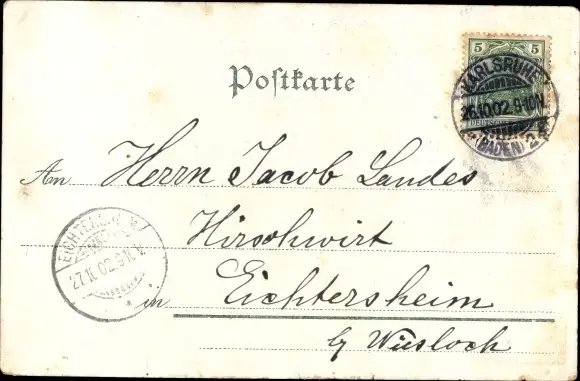 5 5
Postkarte
KARLSRUHE
26.10.02. 9-10N.
(BADEN) 2
An Herrn Jacob Landes
Hirschwirt
EICHTERSHEIM
27.10.02. 9-10.V.
in Eichtersheim
by Wiesloch